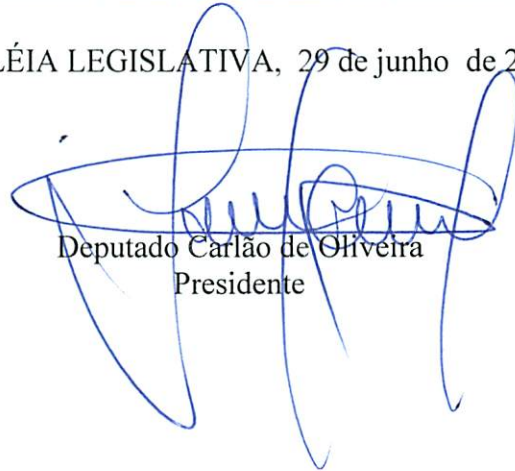 LÉIA LEGISLATIVA, 29 de junho de 2
Deputado Carlão de Oliveira
Presidente